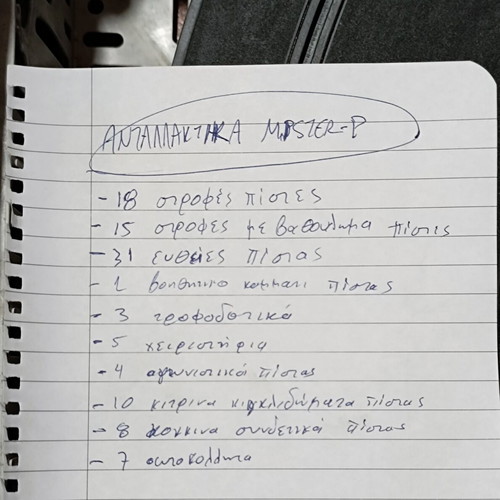 ΑΝΤΑΛΛΑΚΤΙΚΑ MASTER-P
- 18 στροφές πίστες
- 15 στροφες με βαθουλωμα πίστς
- 31 ευθείες πίστας
- 1 βοηθητικο κομματι πίστας
- 3 τροφοδοτικά
- 5 χειριστήρια
- 4 αγωνιστικά πίστας
- 10 κιτρινα κιγκλιδώματα πίστας
- 8 κοκκινα συνδετικά πίστας
- 7 αυτοκολλητα